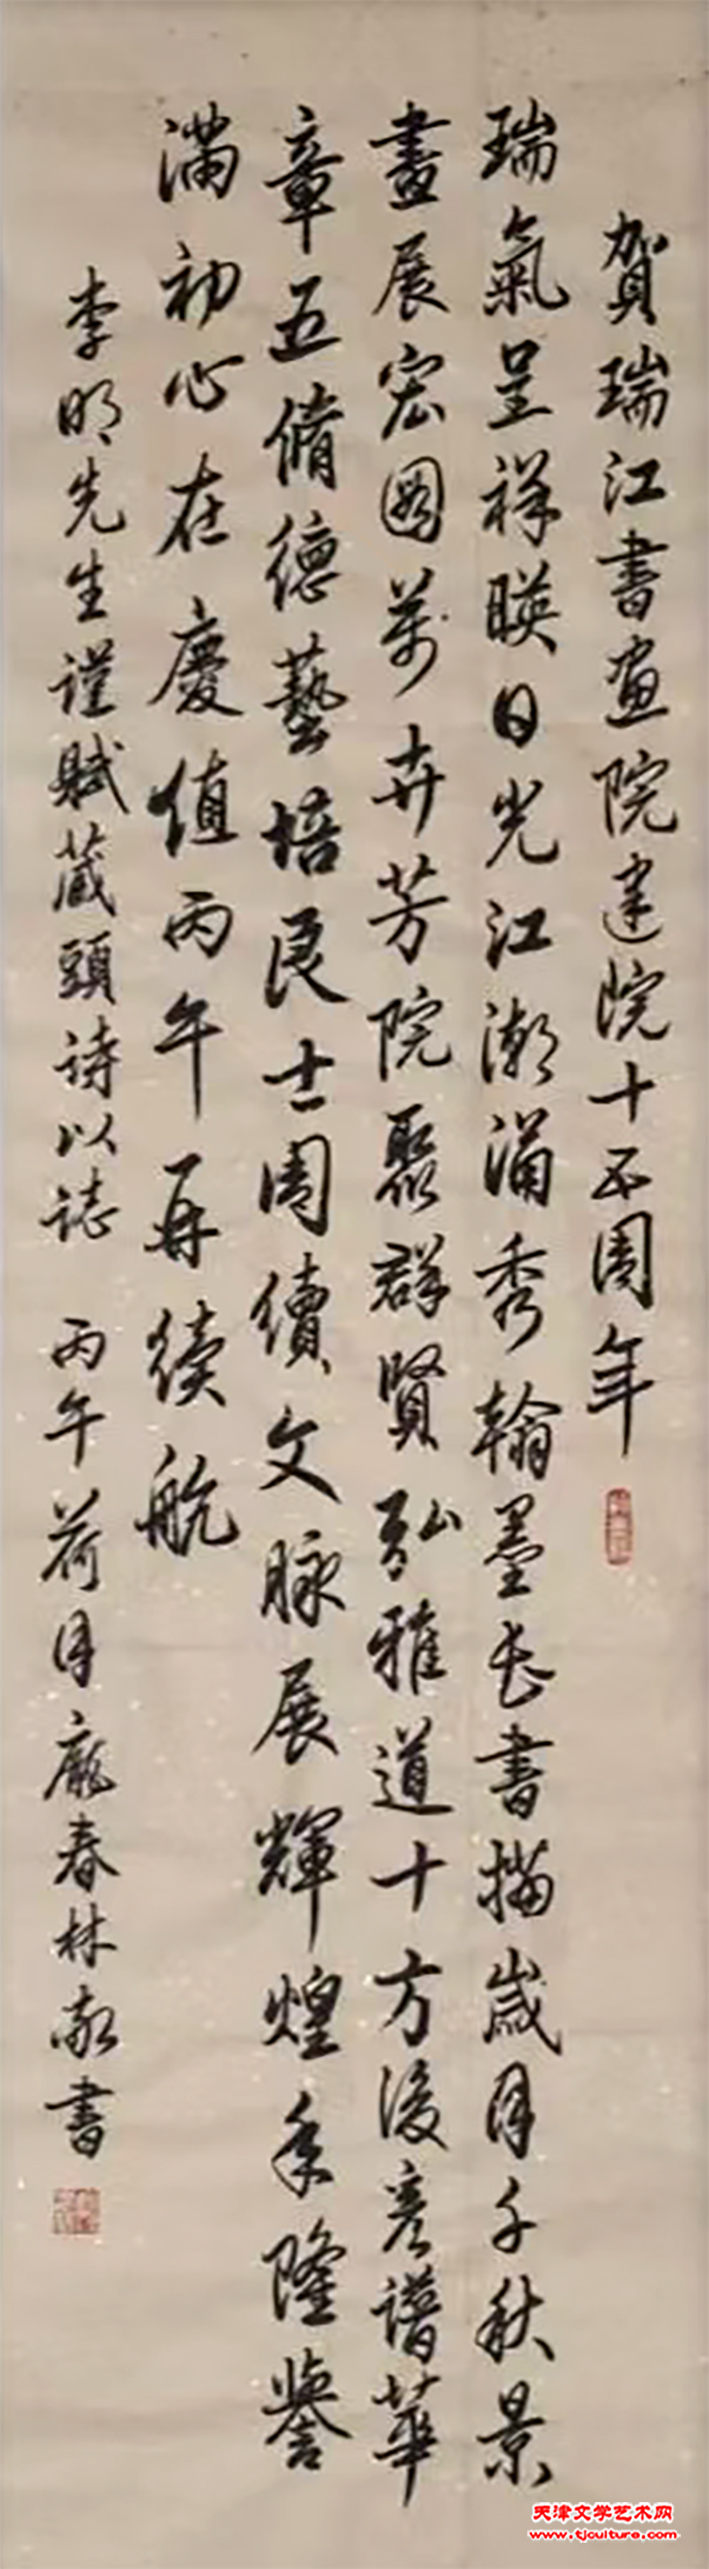 賀瑞江書画院建院十五周年
瑞氣呈祥暎日光江潮涌秀翰墨长書描歲月千秋景
畫展宏圖萬卉芳院聚群賢弘雅道十方後彦譜華
章五脩德藝培良士周續文脉展輝煌年隆譽
滿初心在慶值丙午再续航
李明先生謹賦藏頭詩以誌 丙午荷月龐春林敬書
天津文学艺术网
www.tjculture.com